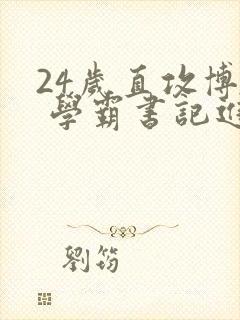 24歲直攻博
學霸書記進
劉筠